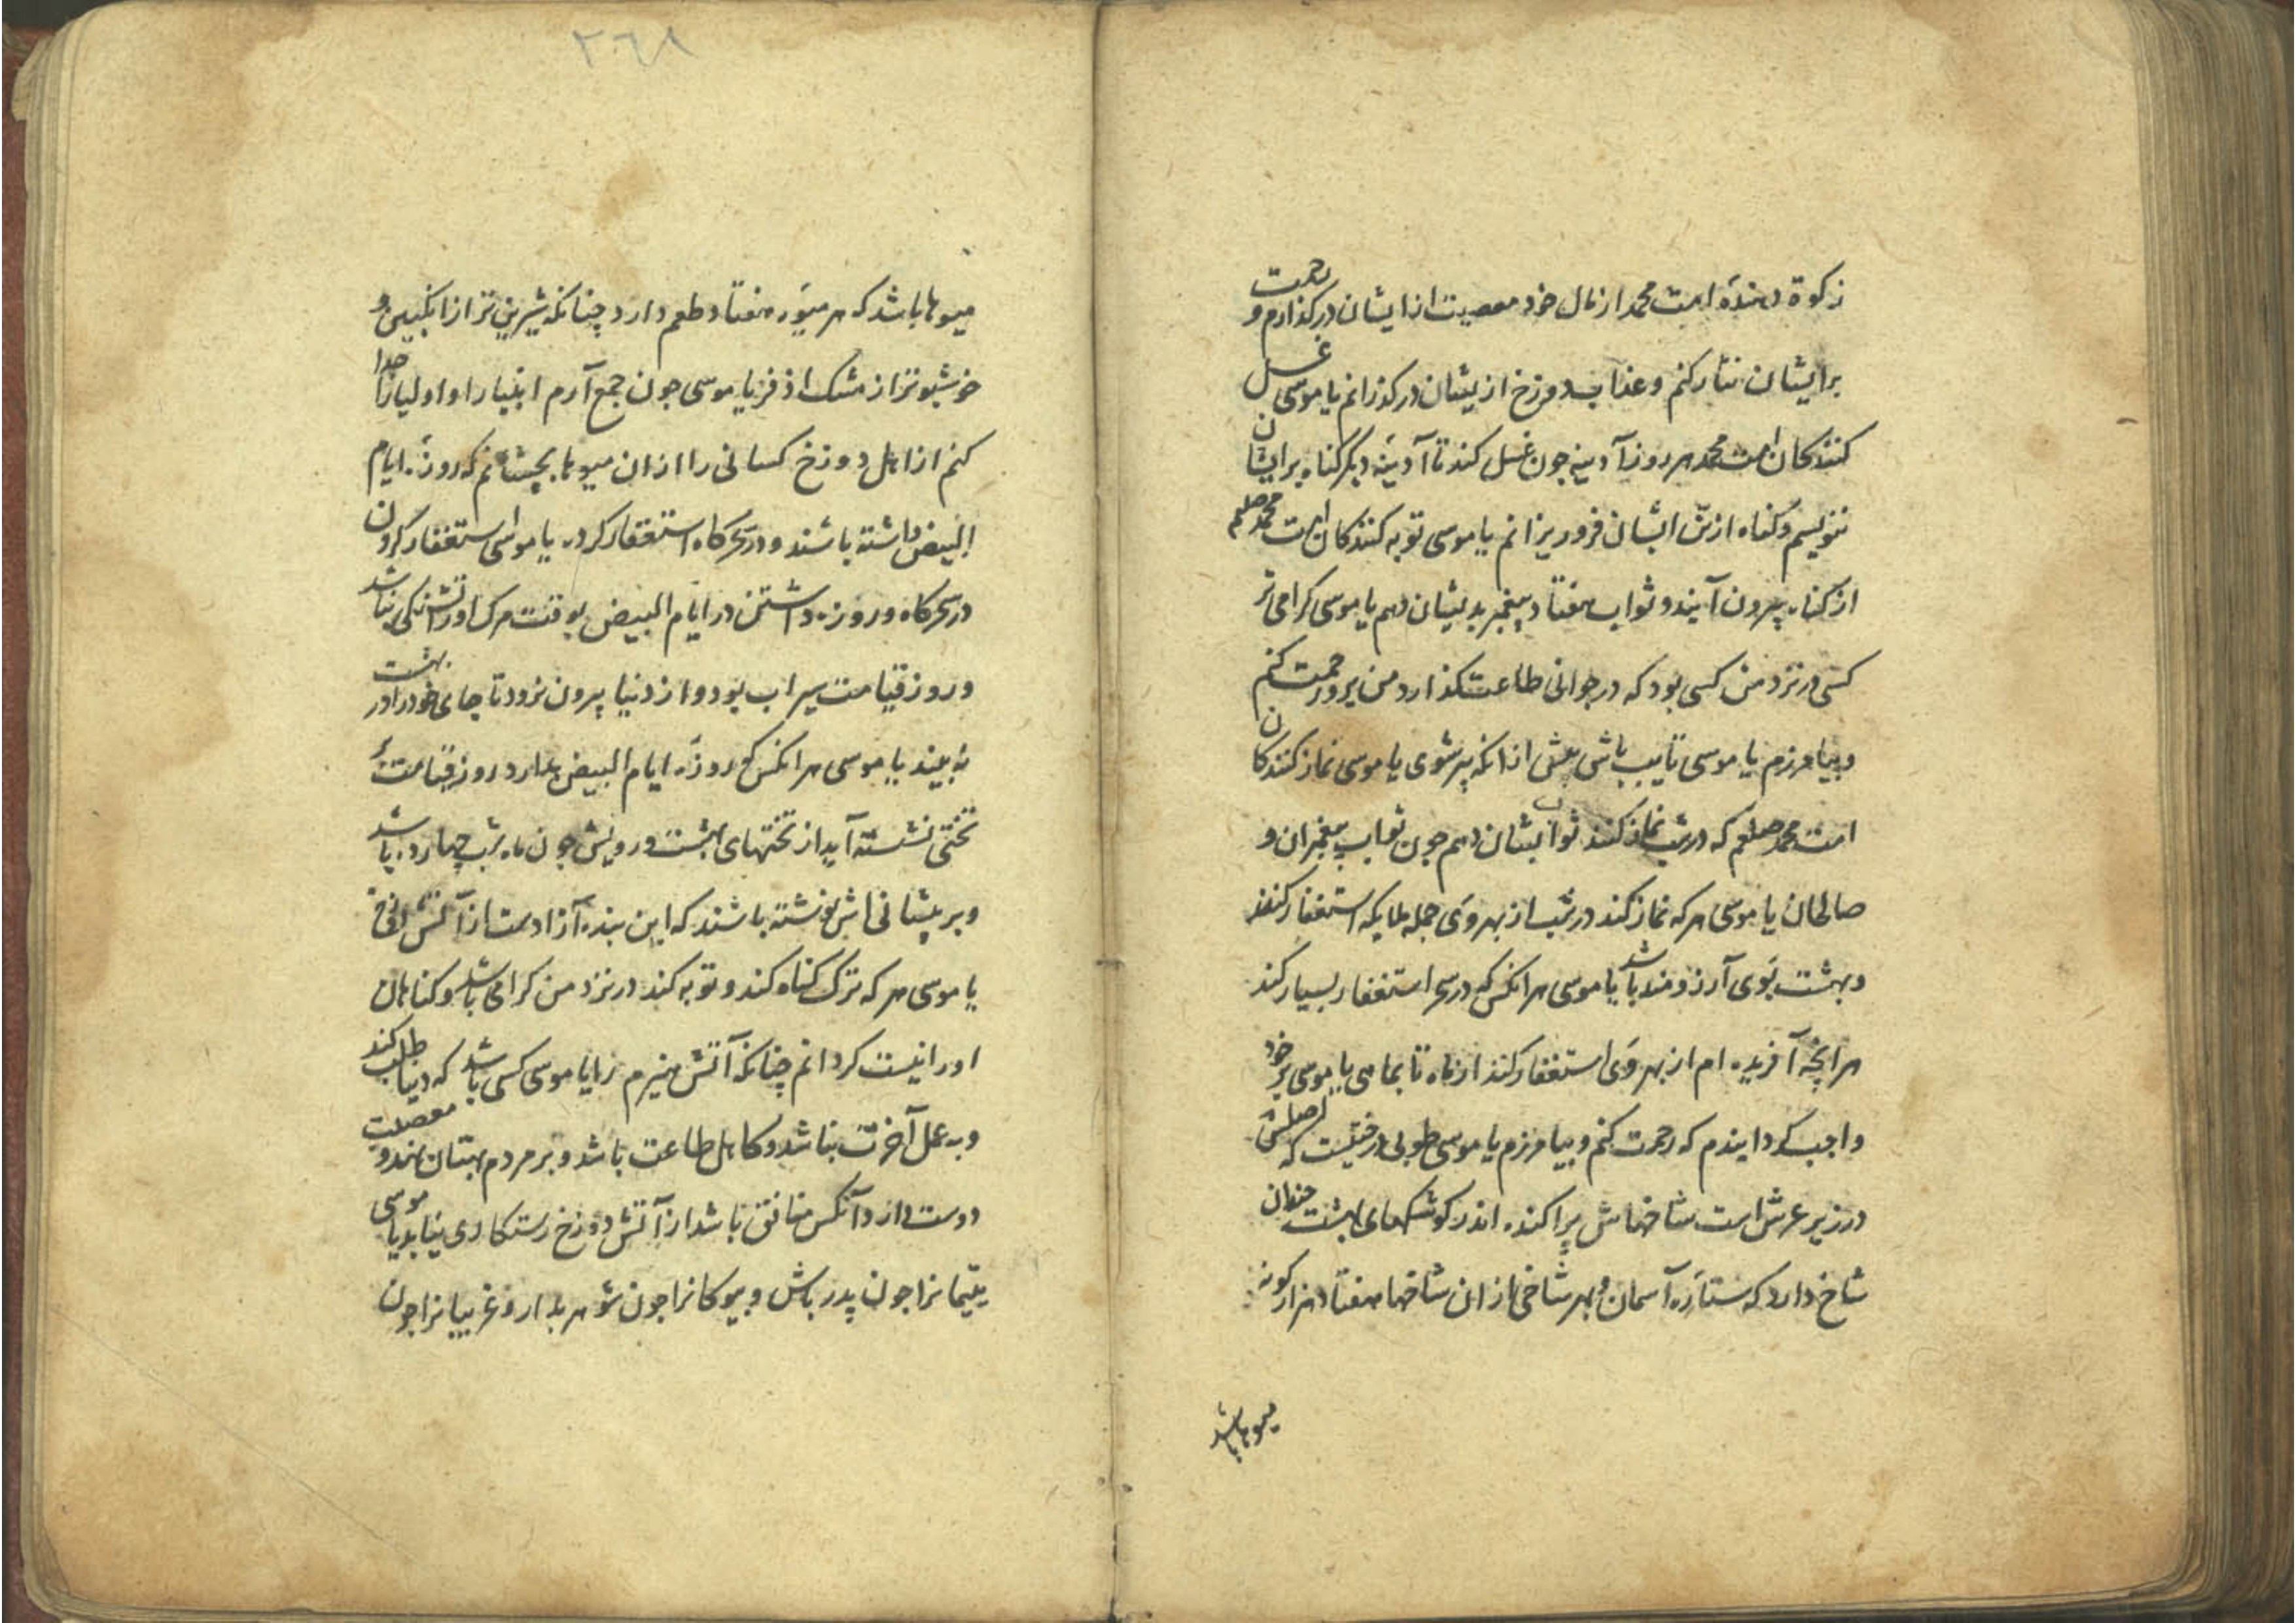 زکوة دهندۀ امت محمد از مال خود معصیت از ایشان درکذارم و رحمت
برایشان نثار کنم و عذاب دوزخ ازیشان درکذرانم یا موسی غسل
کنندکان امت محمد هر روز آدینه چون غسل کند تا آدینۀ دیکر کناه برایشان
ننویسم و کناه از تن ایشان فرو ریزانم یا موسی توبه کنندکان امت محمد صلعم
از کناه بیرون آیند و ثواب هفتاد پیغمبر بدیشان دهم یا موسی کرامی تر
کسی در نزد من کسی بود که در جوانی طاعت کذارد من بروی رحمت کنم
و بیامرزم یا موسی تایب باش پیش ازانکه پیر شوی یا موسی نماز کنندکان
امت محمد صلعم که در شب نماز کنند ثواب ایشان دهم جون ثواب پیغمبران و
صالحان یا موسی هر که نماز کند در شب از بهر وی جمله ملایکه استغفار کنند
و بهشت بوی آرزومند باشد یا موسی هرانکس که در سحر استغفار بسیار کند
هرانچه آفریده ام از بهر وی استغفار کنند از ماه تا بماهی یا موسی بر خود
واجب کردانیدم که رحمت کنم و بیامرزم یا موسی طوبی درختیست که اصلش
در زیر عرش است شاخهاش پراکنده اندر کوشکهای بهشت چندان
شاخ دارد که ستارۀ آسمان و بهر شاخی ازان شاخها هفتاد هزار کونه
میوها باشد
٢٦٨
میوها باشد که هر میوۀ هفتاد طعم دارد چنانکه شیرین تر از انکبین و
خوشبوتر از مشک اذفر یا موسی جون جمع آرم انبیا را و اولیا را جدا
کنم از اهل دوزخ کسانی را ازان میوها بچشانم که روزۀ ایام
البیض داشته باشند و در سحرکاه استغفار کرده یا موسی استغفار کردن
در سحرکاه و روزه داشتن در ایام البیض بوقت مرک او را تشنکی نباشد
و روز قیامت سیراب بود و از دنیا بیرون نرود تا جای خود را در بهشت
نه بیند یا موسی هرانکس که روزۀ ایام البیض بدارد روز قیامت بر
تختی نشسته آید از تختهای بهشت و رویش جون ماه شب چهارده باشد
و بر پیشانی اش نوشته باشند که این بنده آزادست از آتش دوزخ
یا موسی هر که ترک کناه کند و توبه کند در نزد من کرامی باشد و کناهان
او را نیست کردانم چنانکه آتش هیزم را یا موسی کسی باشد که دنیا طلب کند
و به عمل آخرت نباشد و کاهل طاعت باشد و بر مردم بهتان نهد و معصیت
دوست دارد آنکس منافق باشد از آتش دوزخ رستکاری نیابد یا موسی
یتیمانرا جون پدر باش و بیوکانرا جون شوهر بدار و غریبانرا جون